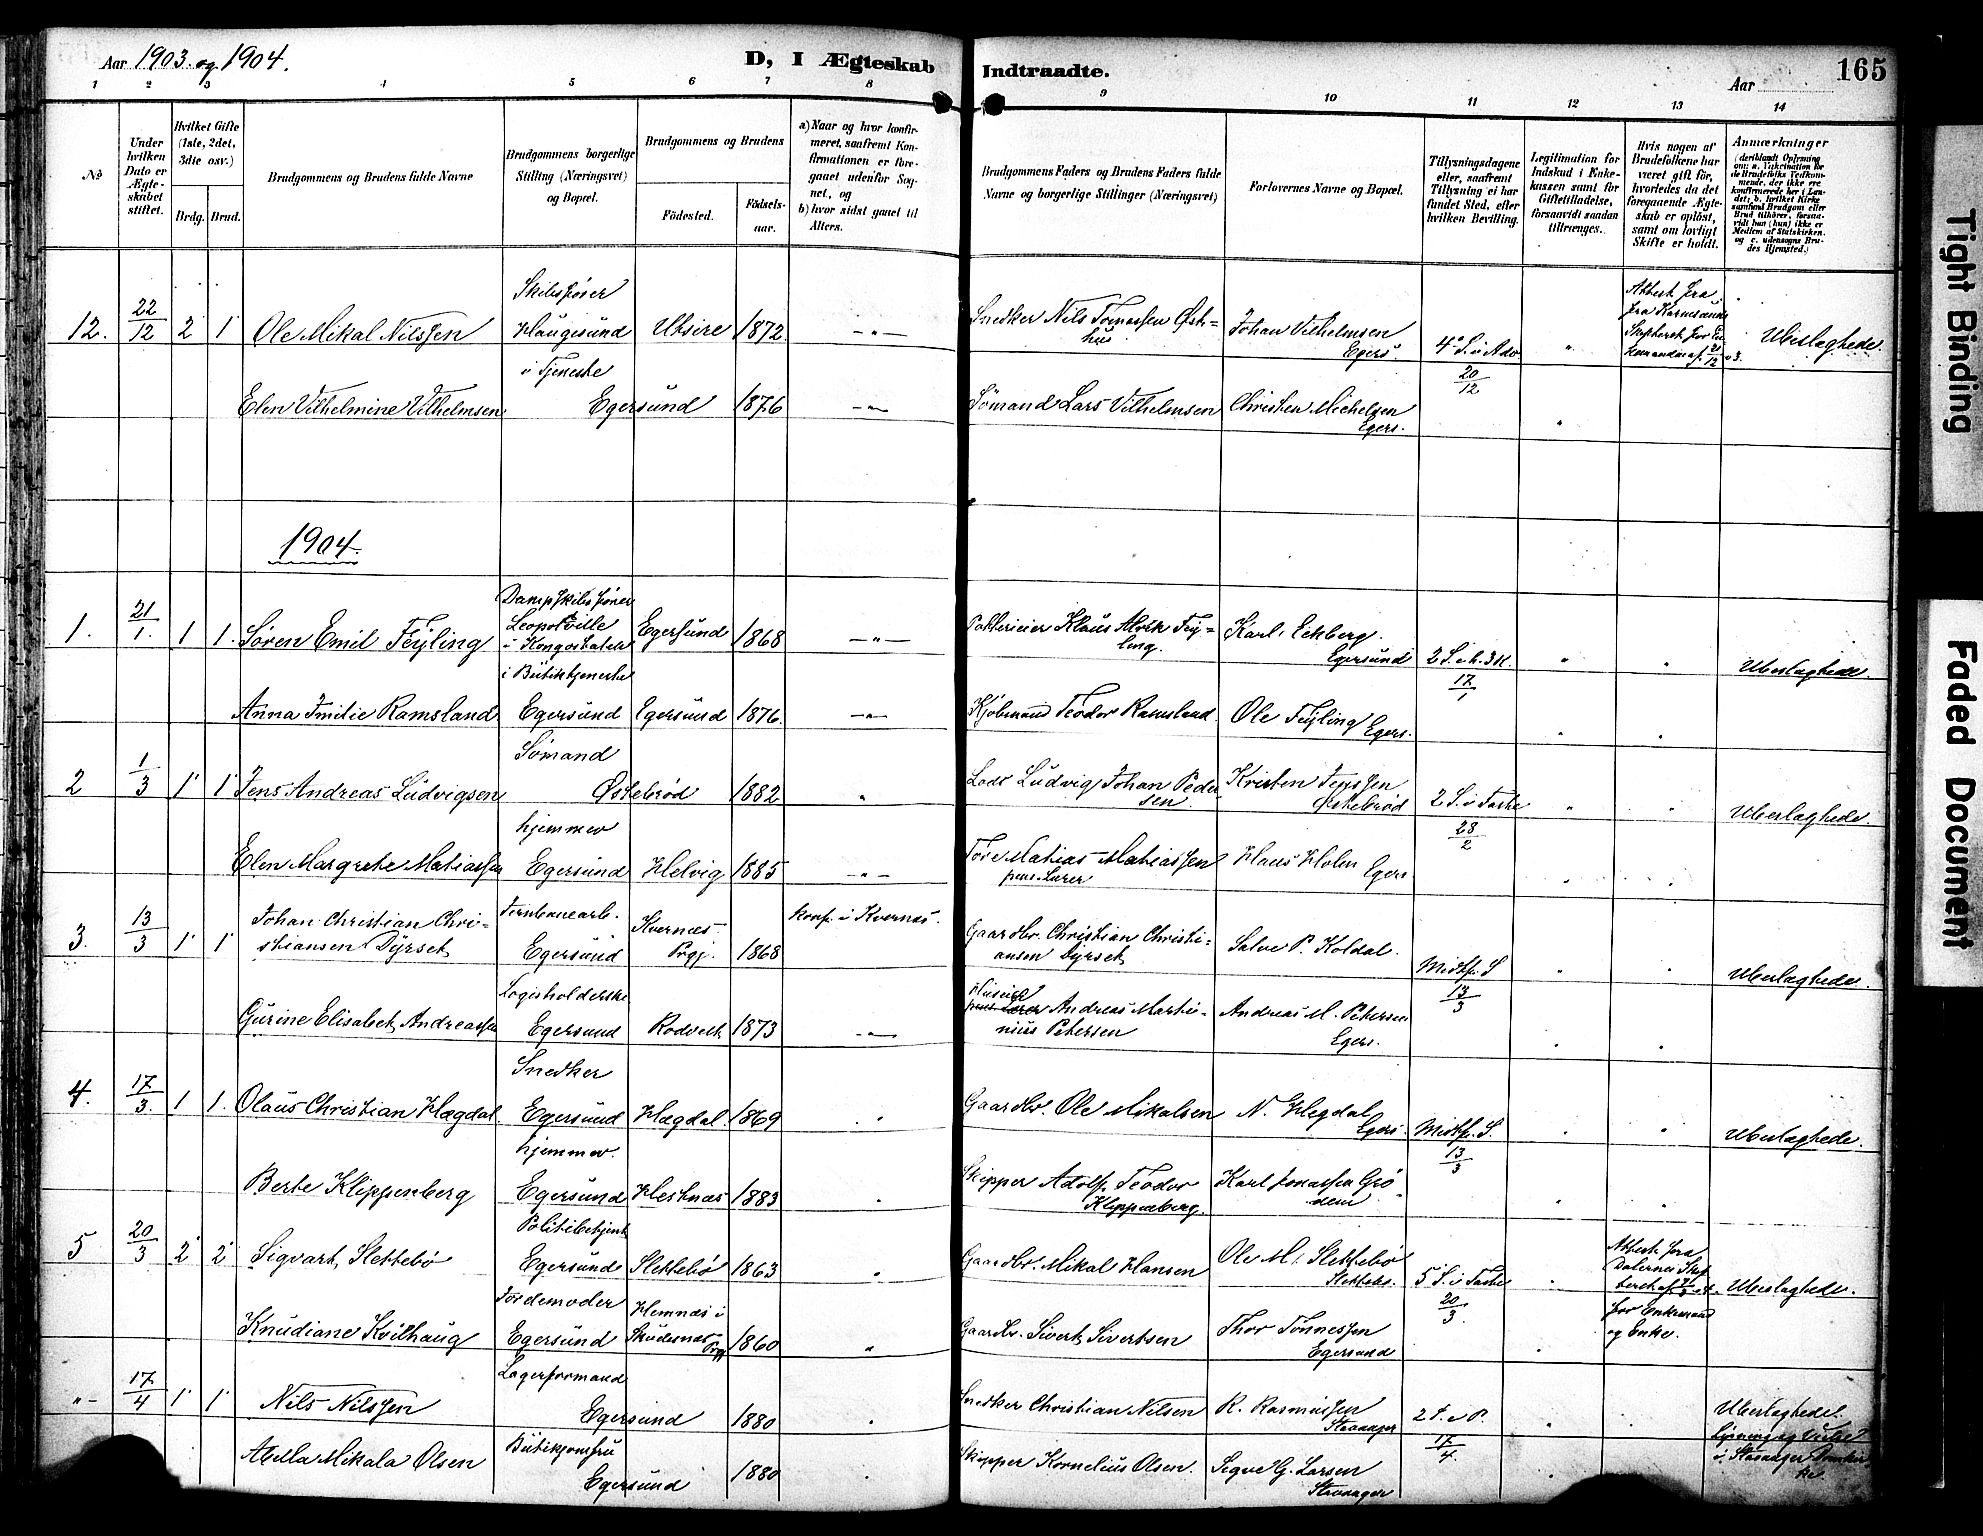 Aar 1903 og 1904.
D, I Ægteskab Indtraadte.
Aar
165
1 2 3 4 5 6 7 8 9 10 11 12 13 14
No
Under hvilken Dato er Ægteskabet stiftet.
Hvilket Gifte (1ste, 2det, 3die osv.)
Brdg. Brud.
Brudgommens og Brudens fulde Navne
Brudgommens borgerlige Stilling (Næringsvei) og Bopæl.
Brudgommens og Brudens
Födested.
Födselsaar.
a) Naar og hvor konfirmeret, saafremt Konfirmationen er foregaaet udenfor Sognet, og
b) hvor sidst gaaet til Alters.
Brudgommens Faders og Brudens Faders fulde Navne og borgerlige Stillinger (Næringsvei)
Forlovernes Navne og Bopæl.
Tillysningsdagene eller, saafremt Tillysning ei har fundet Sted, efter hvilken Bevilling.
Legitimation for Indskud i Enkekassen samt for Giftetilladelse, forsaavidt saadan tiltrænges.
Hvis nogen af Brudefolkene har været gift før, hvorledes da det foregaaende Ægteskab er oplöst, samt om lovligt Skifte er holdt.
Anmærkninger (deriblandt Oplysning om: a. Vakcination for de Brudefolks Vedkommende, der ikke ere konfirmerede her i Landet; b. hvilket Kirkesamfund Brudgom eller Brud tilhører, forsaavidt han (hun) ikke er Medlem af Statskirken. og c. udensogns Brudes Hjemsted.)
12. 22/12 2 1 Ole Mikal Nilssen
Skibsfører Haugesund i Tjeneste
Utsire 1872. -"-
Snedker Nils Tomassen Østhus
Johan Vilhelmsen Egers.
4. S. i Adv 20/12 "
Attest fra
Ubeslægtede.
Elen Vilhelmine Vilhelmsen
Egersund 1876 -"-
Sømand Lars Vilhelmsen
Christen Michelsen Egers.
"
1904.
1. 21/1. 1 1. Søren Emil Feyling
Dampskibsfører Leopolville i Kongostaten
Egersund 1868 -"-
Klaus Feyling
Karl Eckberg. Egersund
17/1 " "
Ubeslægtede.
Anna Emilie Ramsland
i Butiktjeneste Egersund
Egersund 1876. -"-
Kjøbmand Teodor Ramsland
Ole Feyling Egers.
" "
2 1/3 1 1 Jens Andreas Ludvigsen
Sømand Østebrød 1882 "
Lods Ludvig Johan Pedersen
Kristen Jenssen Østebrød
2 S. i Faste 28/2 " "
Ubeslægtede.
Elen Margrete Matiassen
hjemmev Egersund
Helvig 1885 -"-
Tore Matias Matiassen
Klaus Holen Egers
" "
3. 13/3 1 1 Johan Christian Christiansen Dyrset
Jernbanearb. Egersund
Kvernes Prgj. 1868
konf. i Kvernes.
Gaardbr. Christian Christiansen Dyrset
Salve P. Koldal.
Midtf. S 13/3 " "
Ubeslægtede.
Gurine Elisabet Andreassen
Logisholderske Egersund
Rodvelt 1873 -"-
Andreas Martinius Petersen
Andreas M. Petersen Egers.
" "
4. 17/3. 1 1. Olaus Christian Hægdal
Snedker Egersund
Hægdal 1869 "
Gaardbr. Ole Mikalsen
N. Hegdal Egers.
Midtf. S. 13/3 " "
Ubeslægtede.
Berte Klippenberg
hjemmev. Egersund
Hestnes 1883 "
Skipper Adolf Teodor Klippenberg.
Karl Jonassen Grødem
" "
5 20/3 2 2 Sigvart Slettebø
Politibetjent Egersund
Slettebø 1863 "
Gaardbr. Mikal Hansen
Ole M. Slettebø
5 S. i Faste 20/3. "
Attest fra Dalernes for Enkemand og Enke.
Ubeslægtede.
Knudiane Kvilhaug
Jordemoder Egersund
Hemnes i Skudesnes Prgj 1860 "
Gaardbr. Sivert Sivertsen
Thor Tønnessen Egersund
"
"- 17/4 1 1 Nils Nilssen
Lagerformand Egersund 1880 "
Snedker Christian Nilsen
R. Rasmussen Stavanger
2 S. e P. 17/4 " "
Ubeslægtede. Lysning og Vielse i Stavanger Domkirke
Abella Mikala Olsen
Butikjomfru Egersund 1880 "
Skipper Kornelius Olsen.
Segve G. Larsen Stavanger
" "
Tight Binding
Faded Document